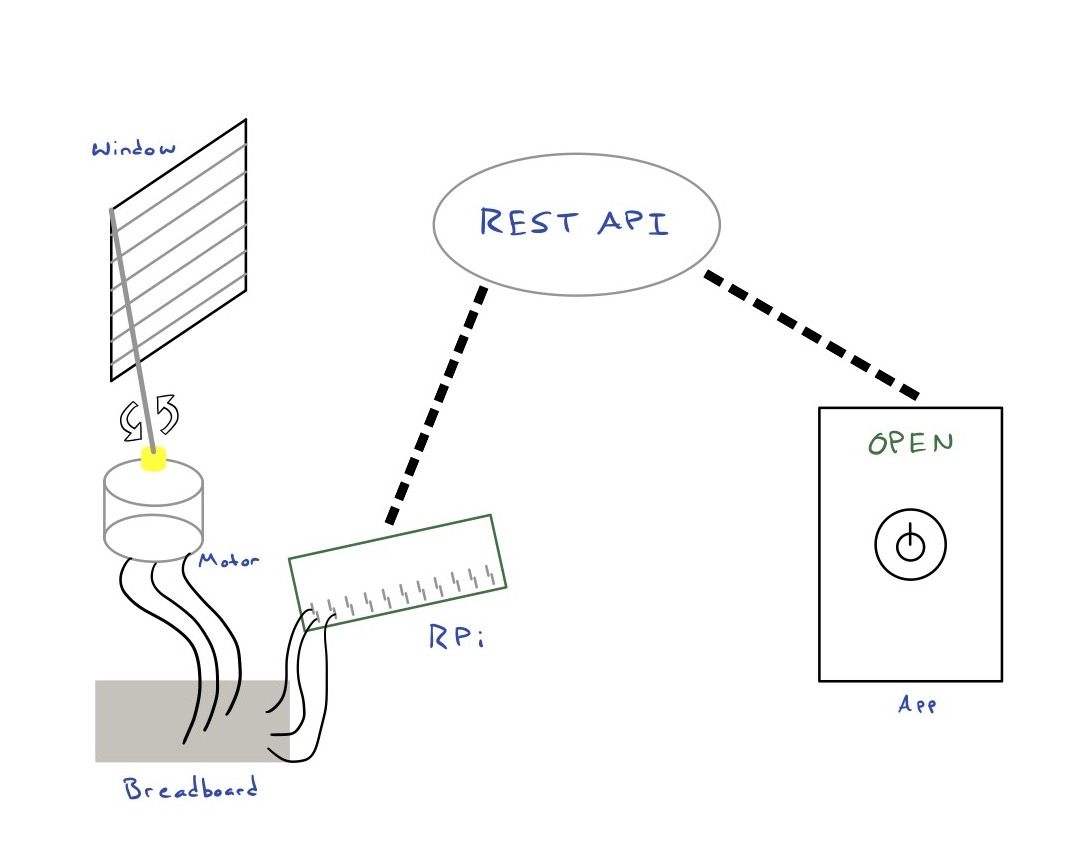 Window
REST API
OPEN
Motor
RPi
App
Breadboard